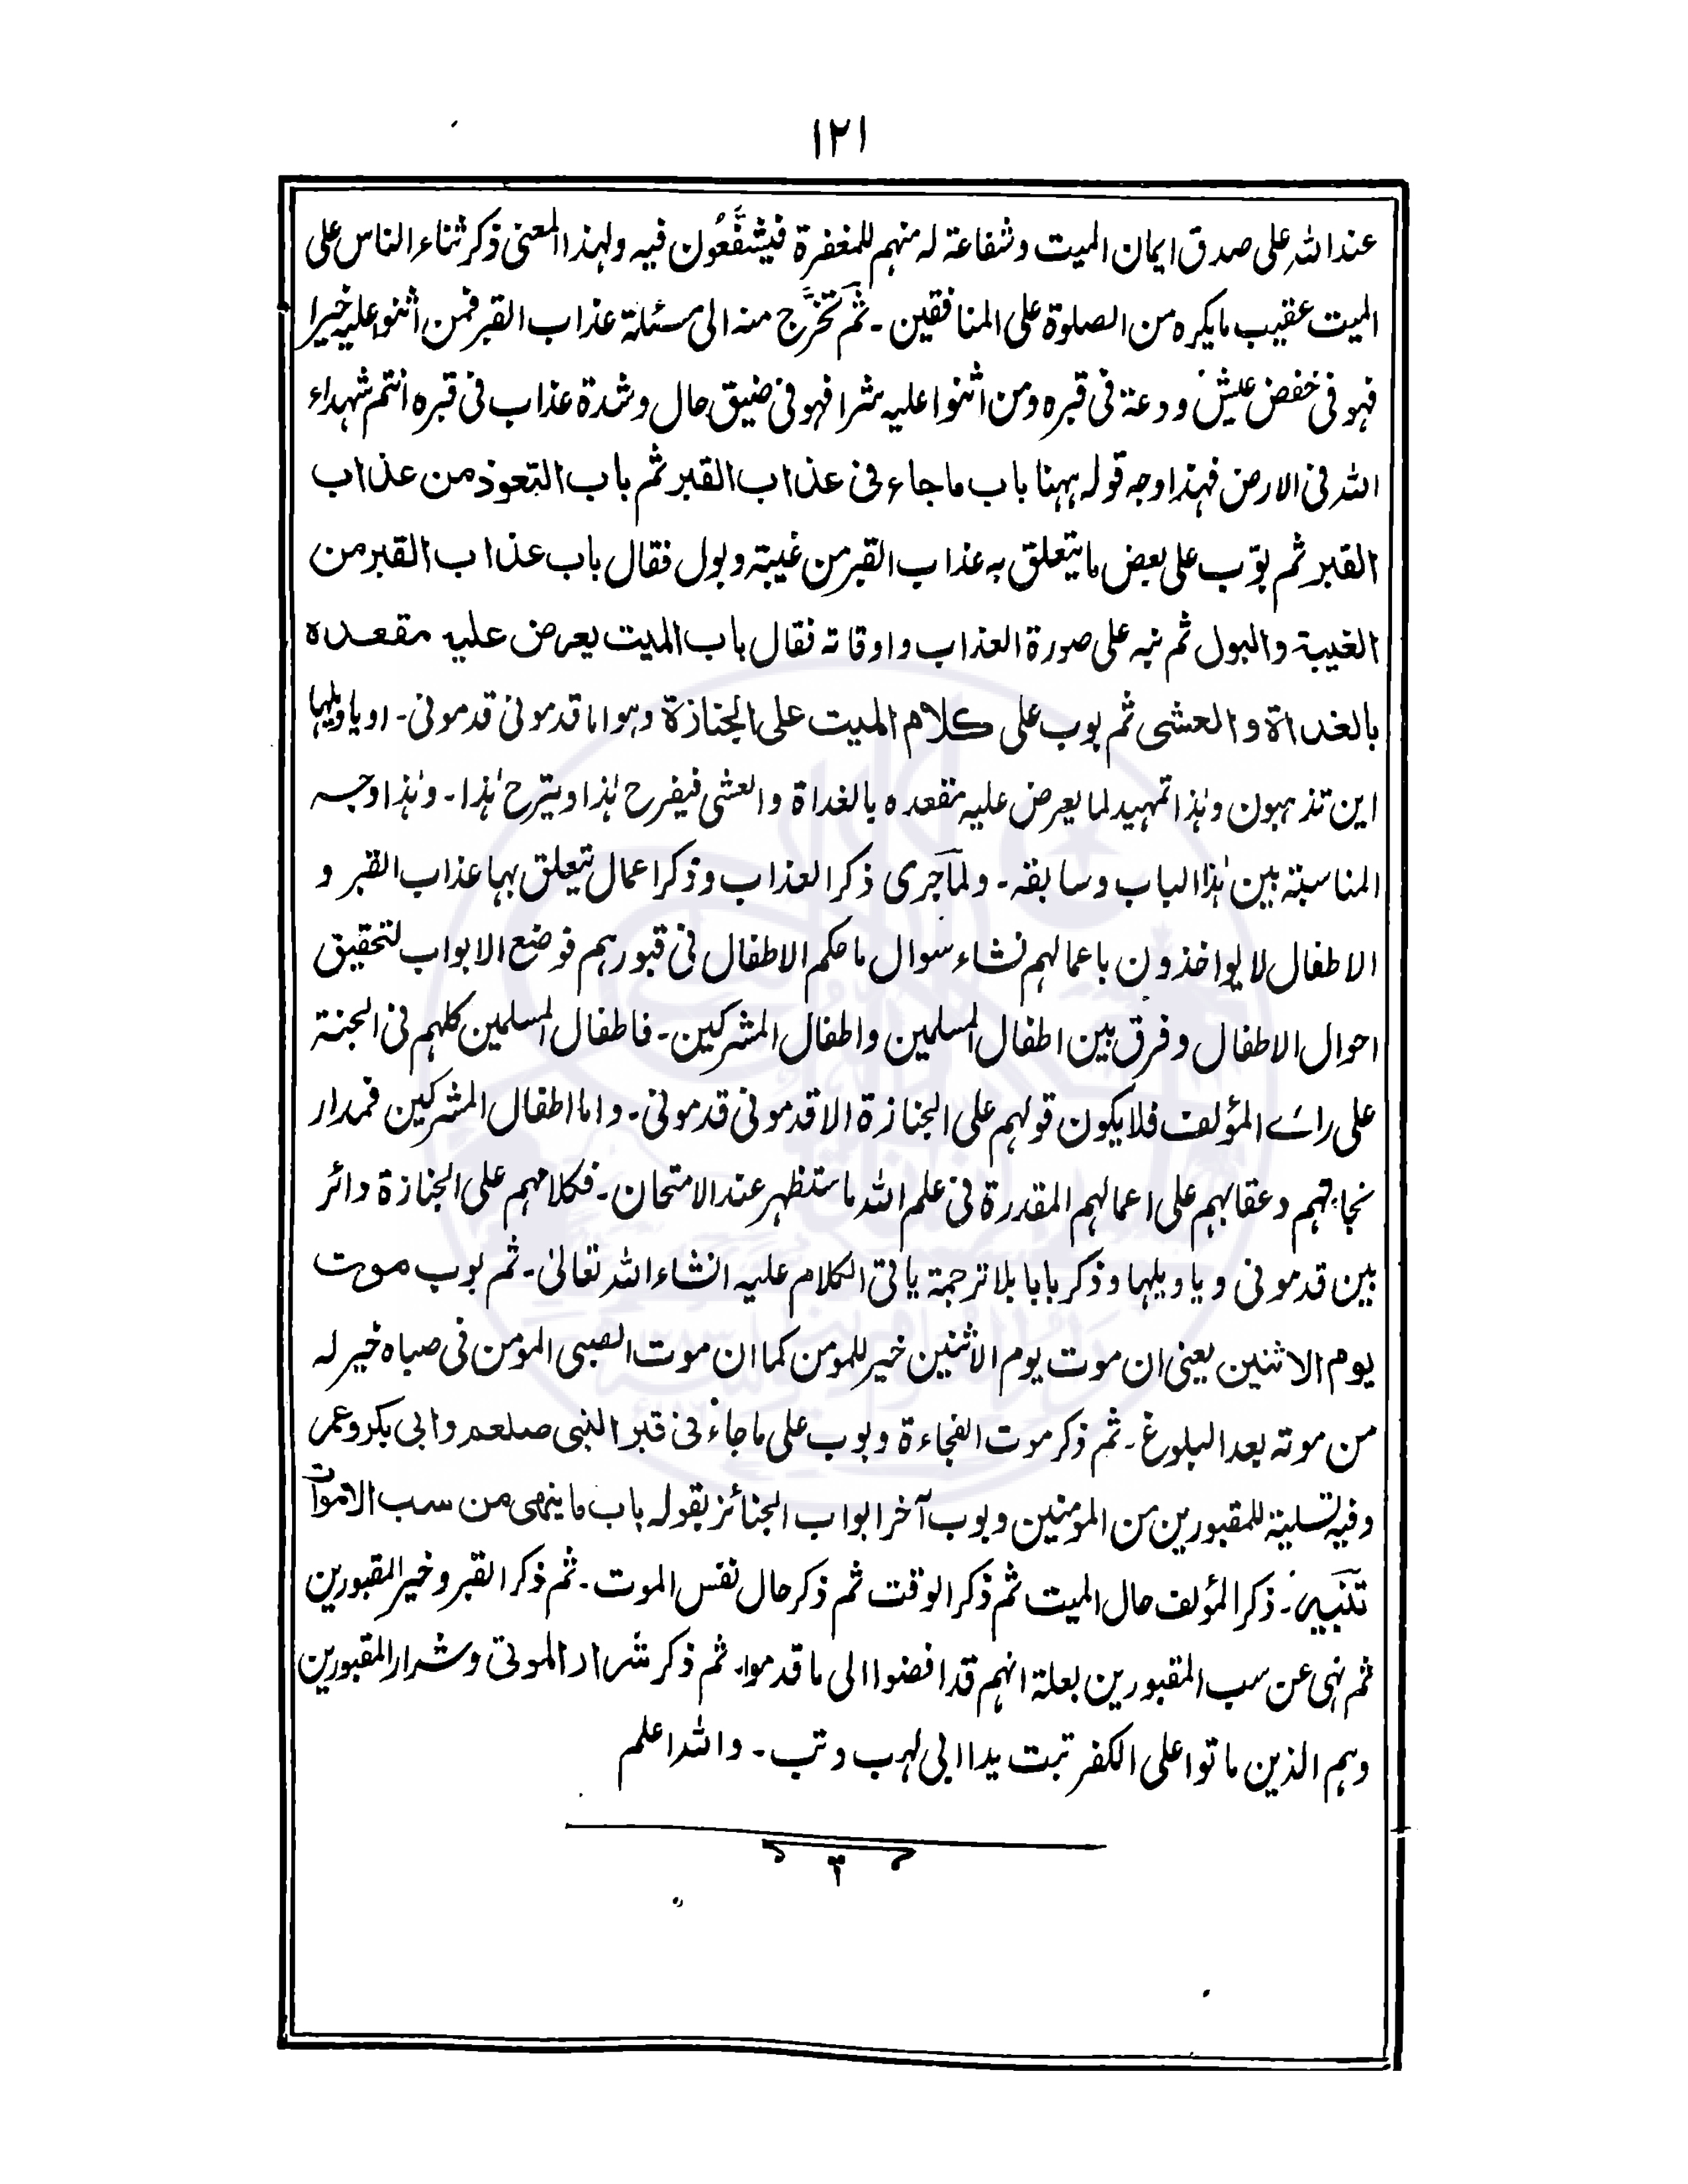 ۱۲۱
عند الله على صدق ايمان الميت وشفاعة له منهم للمغفرة فيُشَفَّعُون فيه ولهذا المعنى ذكر ثناء الناس على
الميت عقيب ما يكره من الصلوة على المنافقين۔ ثم تَخَرَّج منه الى مسئلة عذاب القبر فمن أثنوا عليه خيرا
فهو فى خفض عيش ودعة فى قبره ومن أثنوا عليه شرا فهو فى ضيق حال وشدة عذاب فى قبره انتم شهداء
الله فى الارض فهذا وجه قوله ههنا باب ما جاء فى عذاب القبر ثم باب التعوذ من عذاب
القبر ثم بوّب على بعض ما يتعلق به عذاب القبر من غيبة وبول فقال باب عذاب القبر من
الغيبة والبول ثم نبه على صورة العذاب واوقاته فقال باب الميت يعرض عليه مقعده
بالغداة والعشى ثم بوب على كلام الميت على الجنازة وهو اما قدمونى قدمونى۔ او يا ويلها
اين تذهبون وهٰذا تمهيد لما يعرض عليه مقعده بالغداة والعشى فيفرح هٰذا ويترح هٰذا۔ وهٰذا وجه
المناسبة بين هٰذا الباب وسابقه۔ ولما جرى ذكر العذاب وذكر اعمال يتعلق بها عذاب القبر و
الاطفال لا يواخذون باعمالهم نشاء سوال ما حكم الاطفال فى قبورهم فوضع الابواب لتحقيق
احوال الاطفال وفرق بين اطفال المسلمين واطفال المشركين۔ فاطفال المسلمين كلهم فى الجنة
على رائے المؤلف فلا يكون قولهم على الجنازة الا قدمونى قدمونى۔ واما اطفال المشركين فمدار
نجاتهم وعقابهم على اعمالهم المقدرة فى علم الله ما ستظهر عند الامتحان۔ فكلامهم على الجنازة دائر
بين قدمونى ويا ويلها وذكر بابا بلا ترجمة ياتى الكلام عليه انشاء الله تعالىٰ۔ ثم بوب موت
يوم الاثنين يعنى ان موت يوم الاثنين خير للمومن كما ان موت الصبى المومن فى صباه خير له
من موته بعد البلوغ۔ ثم ذكر موت الفجاءة وبوب على ما جاء فى قبر النبى صلعم وابى بكر وعمر
وفيه تسلية للمقبورين من المومنين وبوب آخر ابواب الجنائز بقوله باب ما ينهى من سب الاموات
تنبيه۔ ذكر المؤلف حال الميت ثم ذكر الوقت ثم ذكر حال نفس الموت۔ ثم ذكر القبر وخير المقبورين
ثم نهى عن سب المقبورين بعلة انهم قد افضوا الى ما قدموا۔ ثم ذكر شرار الموتى وشرار المقبورين
وهم الذين ماتوا على الكفر تبت يدا ابى لهب وتب۔ والله اعلم